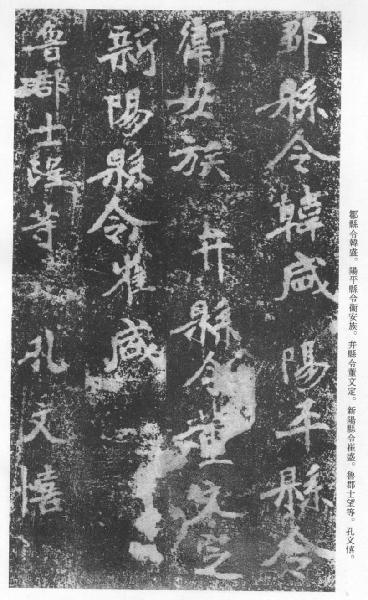 鄒縣令韓盛。陽平縣令衛安族。弁縣令董文定。新陽縣令崔盛。魯郡士望等。孔文憘。
鄒縣令韓盛陽平縣令
衛安族弁縣令董文定
新陽縣令崔盛
魯郡士望等孔文憘